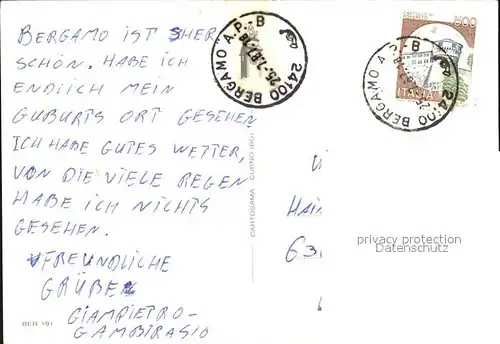 BERGAMO IST SHER
SCHÖN. HABE ICH
ENDLICH MEIN
GUBURTS ORT GESEHEN
ICH HABE GUTES WETTER,
VON DIE VIELE REGEN
HABE ICH NICHTS
GESEHEN.
FREUNDLICHE
GRÜBE
GIAMPIETRO-
GAMBIRASIO
BER 191
CARTOSAMA
24100 BERGAMO A.P.-B
24100 BERGAMO A.P.-B
500
ITALIA
HAI
63
privacy protection
Datenschutz